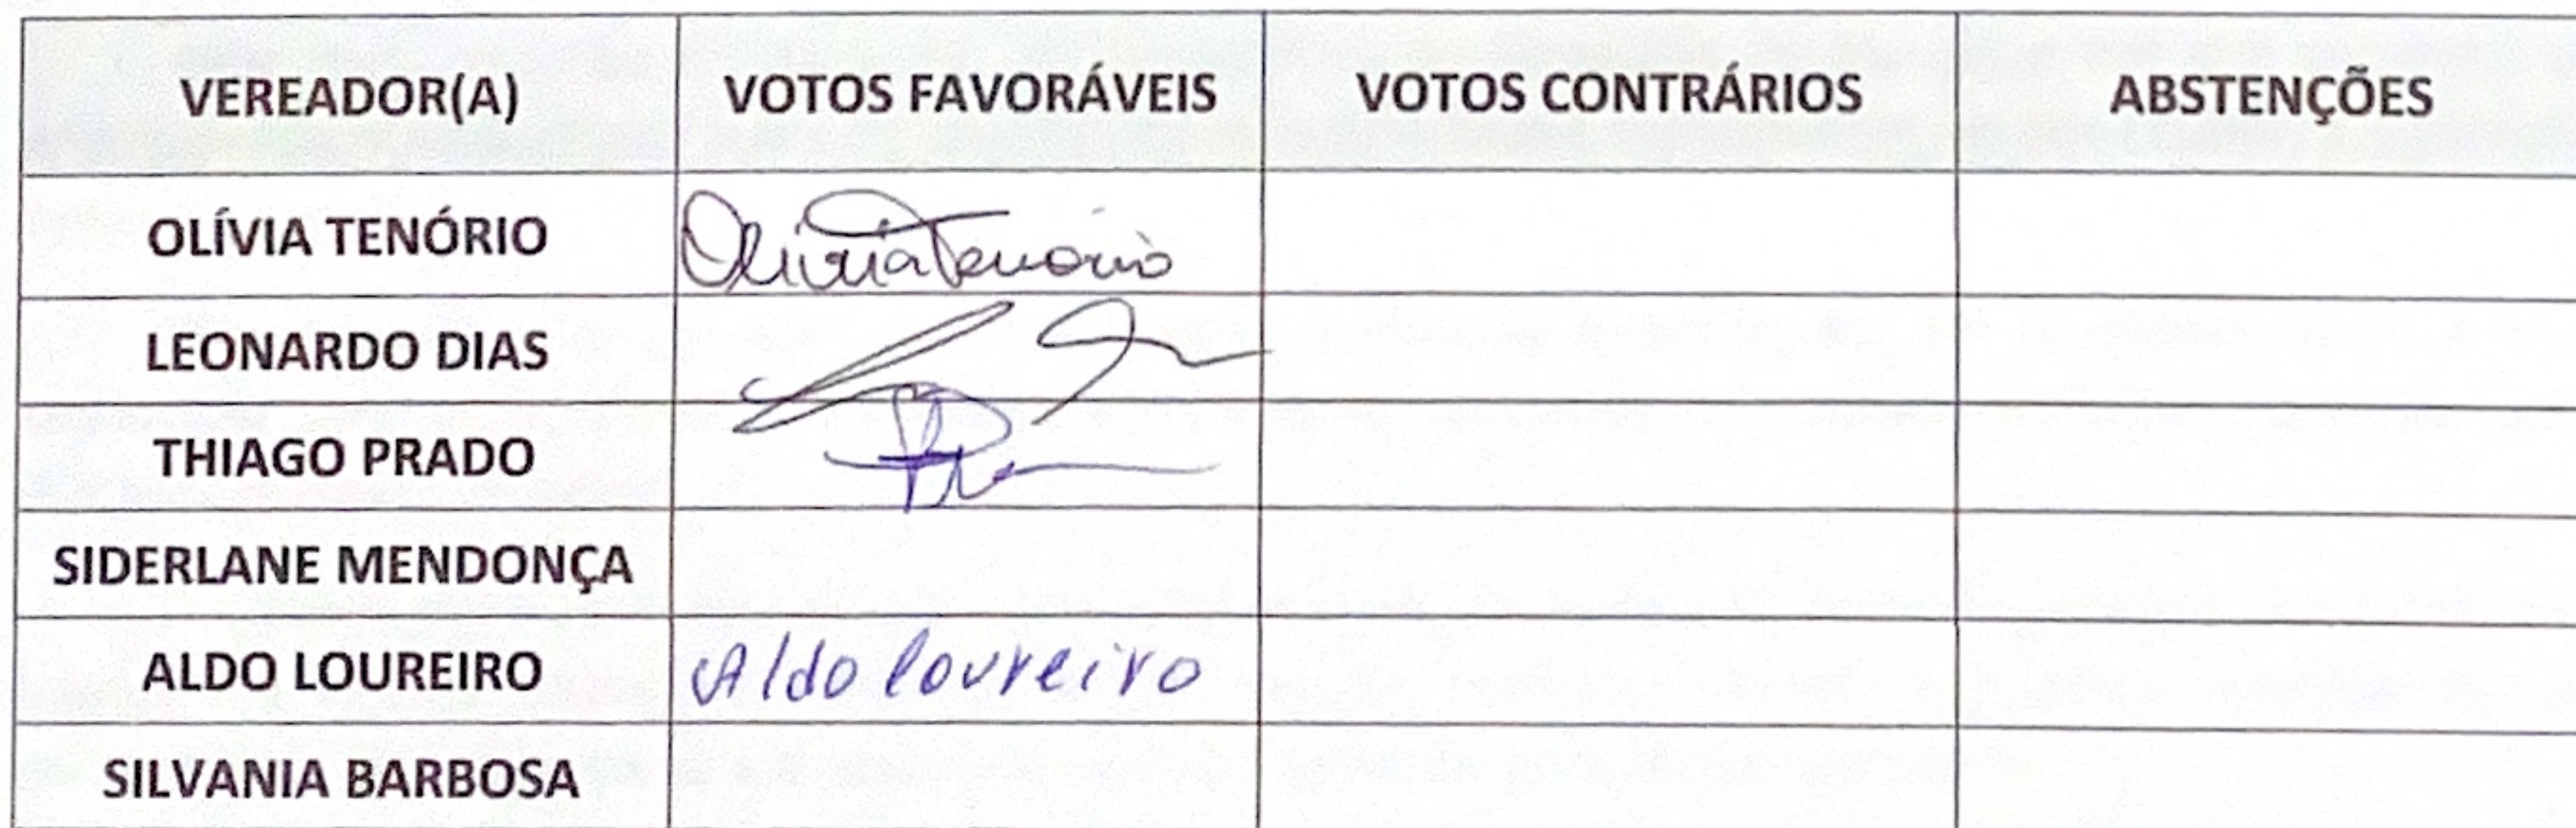 VEREADOR(A) VOTOS FAVORÁVEIS VOTOS CONTRÁRIOS ABSTENÇÕES
OLÍVIA TENÓRIO Olivia Tenório
LEONARDO DIAS
THIAGO PRADO
SIDERLANE MENDONÇA
ALDO LOUREIRO Aldo Loureiro
SILVANIA BARBOSA